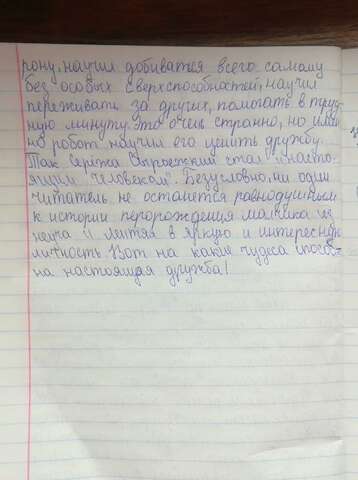 рону, научил добиватся всего самому
без особых сверхспособностей, научил
переживать за других, помогать в труд-
ную минуту. Это очень странно, но имен-
но робот научил его ценить дружбу.
Так Серёжа Сыроежкин стал "насто-
ящим "человеком". Безусловно, ни один
читатель не останется равнодушным
к истории перорождения мальчика из
неуча и лентяя в яркую и интересную
личность. Вот на какие чудеса способ-
на настоящая дружба!